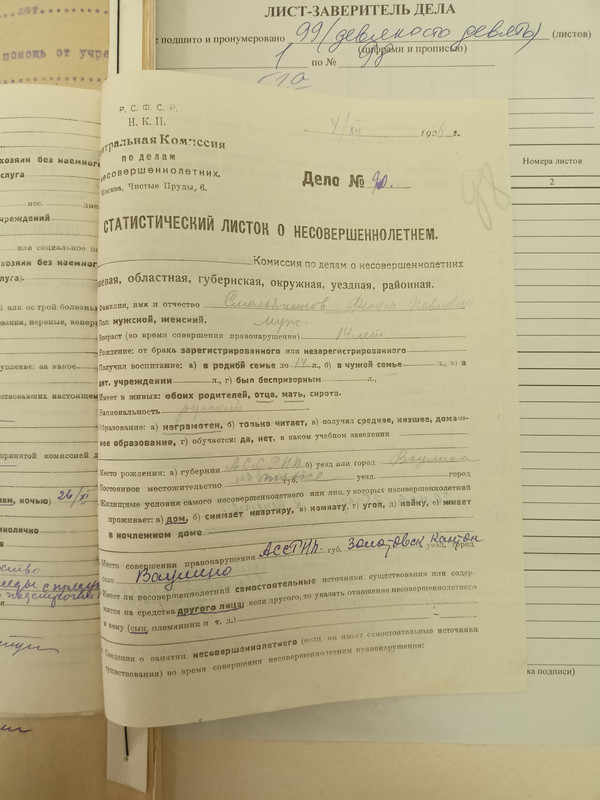 ЛИСТ-ЗАВЕРИТЕЛЬ ДЕЛА
подшито и пронумеровано 99 (девяносто девять) (листов)
(цифрами и прописью)
1 по № 99
Номера листов
2
ка подписи)
лет.
помощь от учре
хозяин без наемног
слуга
мес.
чреждений
или социальное
хозяин без наемног
слуга).
или острой болезнь
ования, нервные, венер
тупление: за какое
ствовавших настоящем
принятой комиссией д
ем, ночью) 26/XI
Р. С. Ф. С. Р.
Н. К. П.
нтральная Комиссия
по делам
несовершеннолетних.
Москва, Чистые Пруды, 6.
4/XII 1926 г.
Дело № 90.
98
СТАТИСТИЧЕСКИЙ ЛИСТОК О НЕСОВЕРШЕННОЛЕТНЕМ.
Комиссия по делам о несовершеннолетних
евая, областная, губернская, окружная, уездная, районная.
Фамилия, имя и отчество
Пол: мужской, женский. муж.
Возраст (во время совершения правонарушения) 14 лет
Рождение: от брака зарегистрированного или незарегистрированного
Получил воспитание: а) в родной семье до 14 л., б) в чужой семье л., в) в
дет. учреждении л., г) был беспризорным л.,
Имеет в живых: обоих родителей, отца, мать, сирота.
Национальность русский
Образование: а) неграмотен, б) только читает, в) получал среднее, низшее, домаш-
нее образование, г) обучается: да, нет, в каком учебном заведении
Место рождения: а) губерния АССРНП б) уезд или город Ваулино
Постоянное местожительство губ. уезд. город
Жилищные условия самого несовершеннолетнего или лиц, у которых несовершеннолетний
проживает: а) дом, б) снимает квартиру, в) комнату, г) угол, д) койку, е) живет
в ночлежном доме
Место совершения правонарушения АССРНП. губ. Золотовск Кантон уезд, город
село Ваулино
Имеет ли несовершеннолетний самостоятельные источники существования или содер-
жится на средства другого лица; если другого, то указать отношение несовершеннолетнего
к нему (сын, племянник и т. д.)
Сведения о занятии несовершеннолетнего (если он имеет самостоятельные источники
существования) во время совершения несовершеннолетним правонарушения: